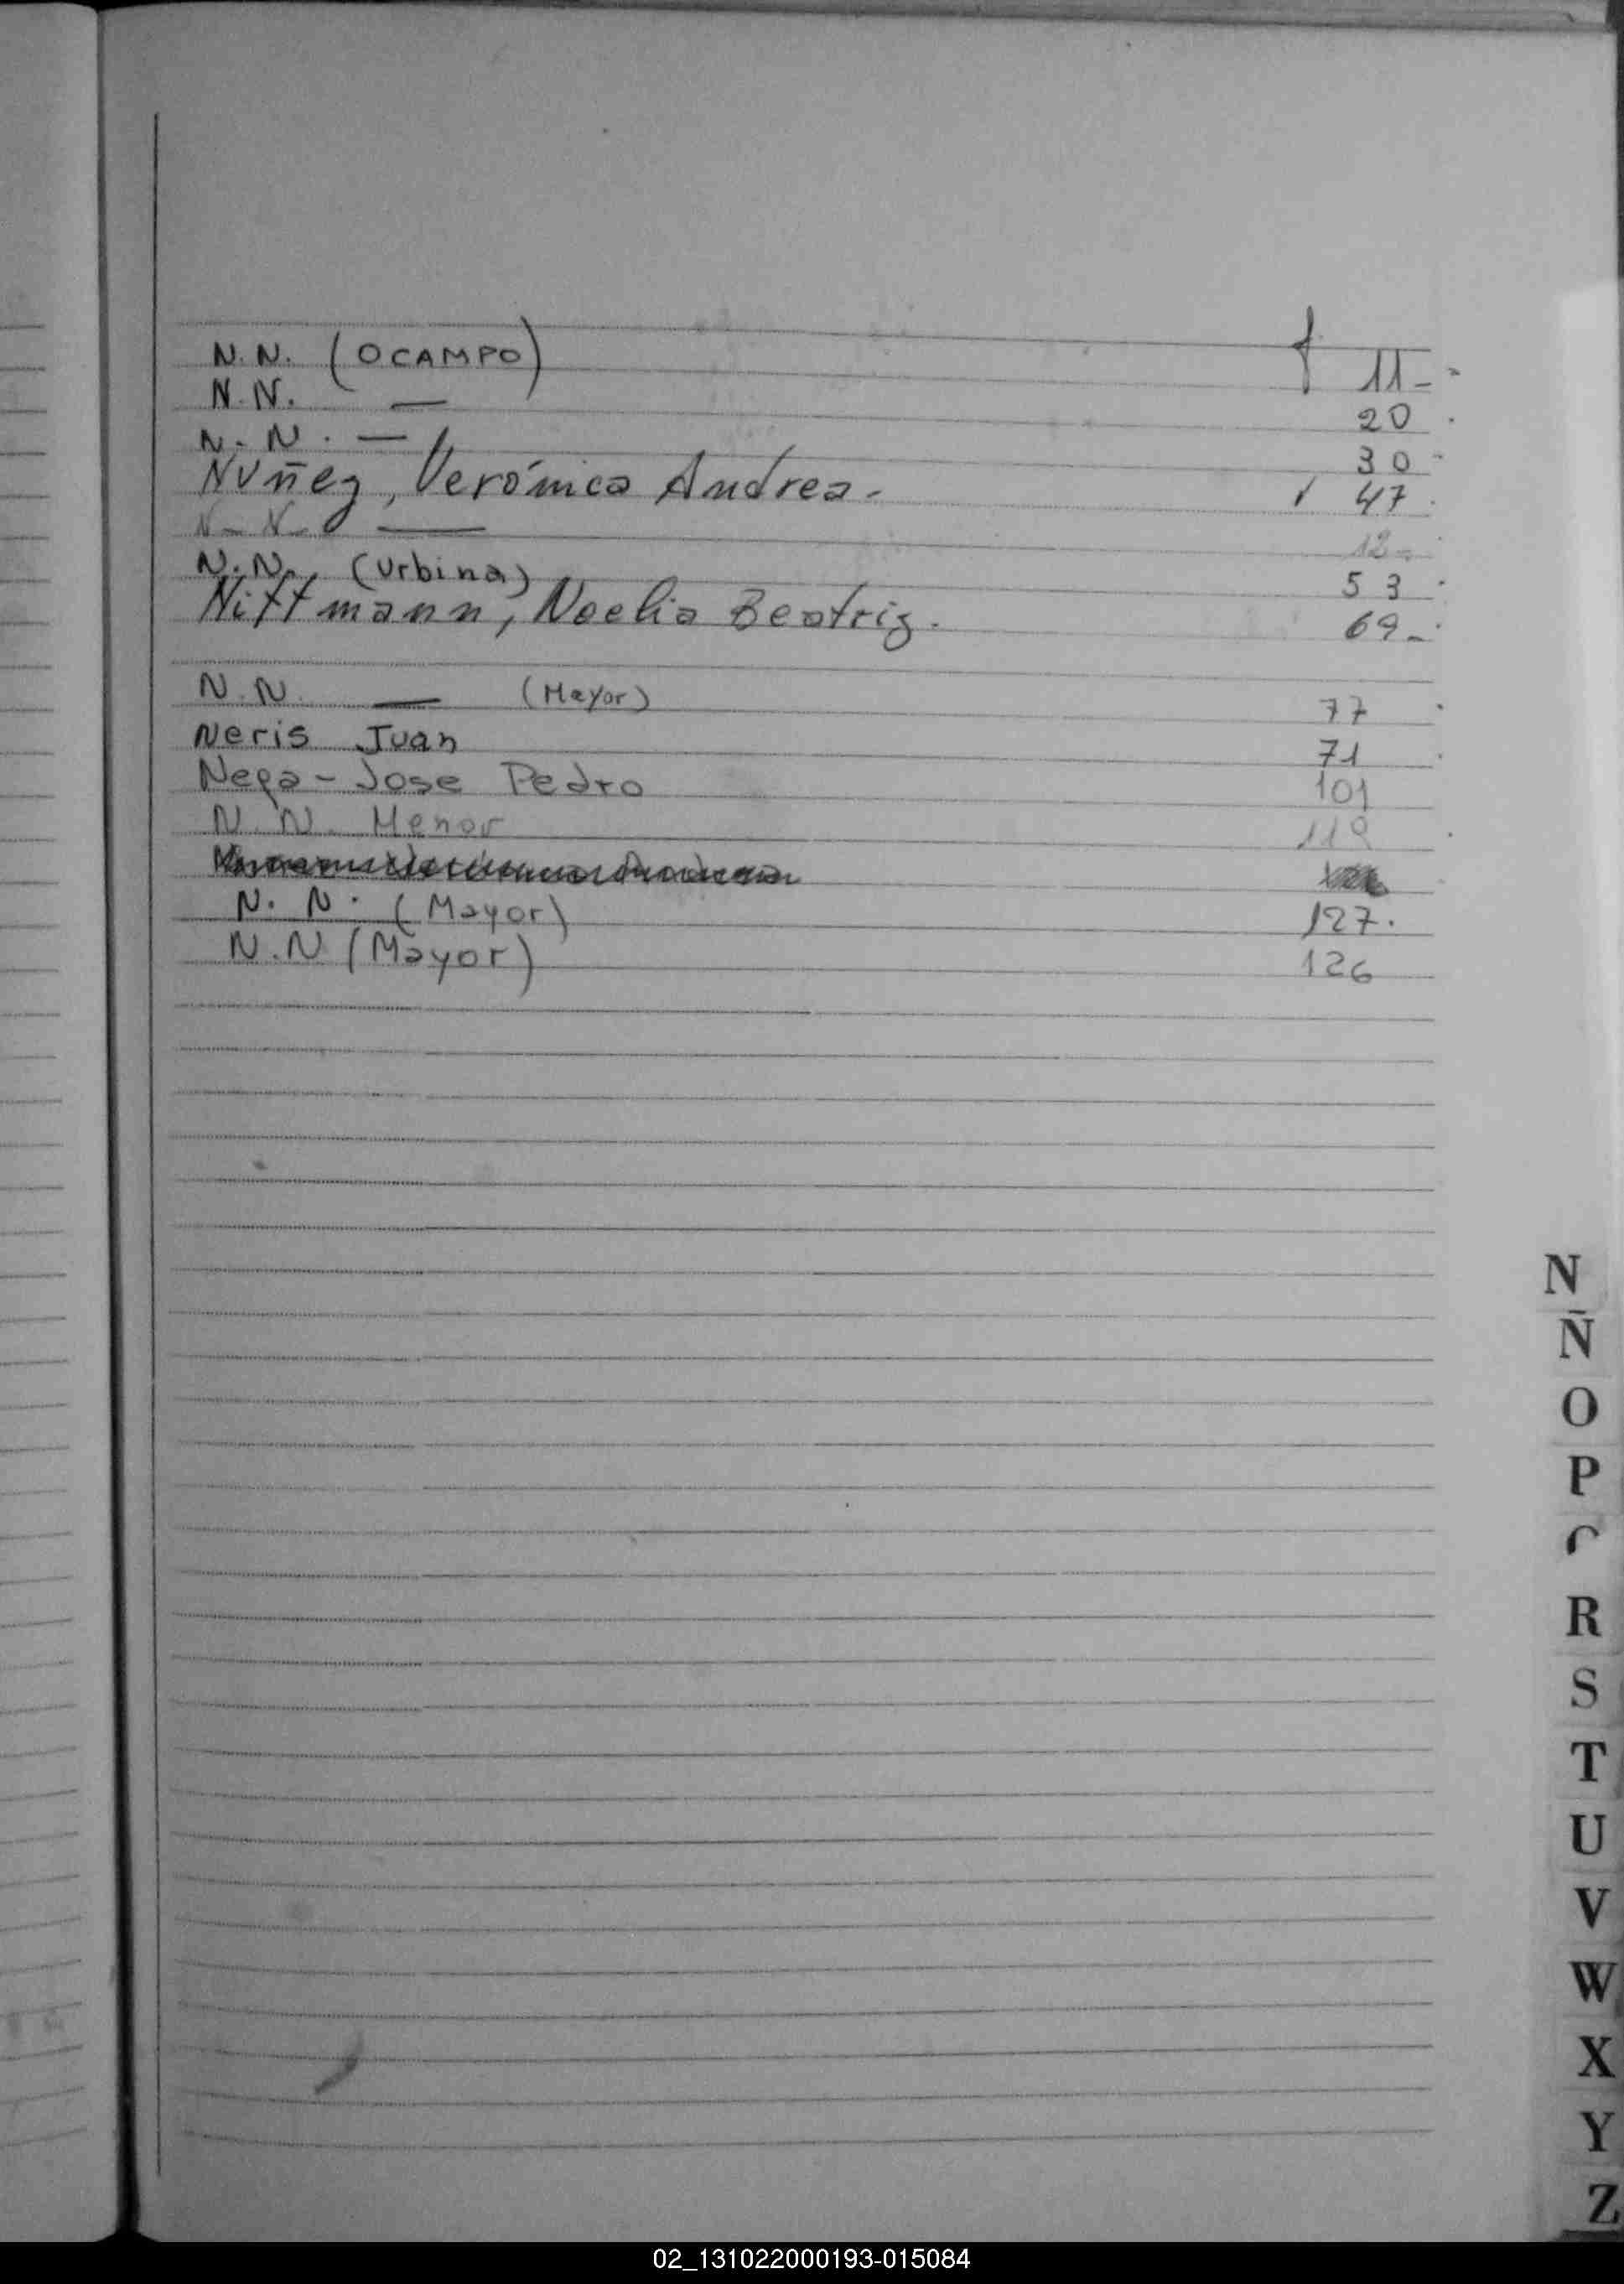 N.N. (OCAMPO) f 11-
N.N. — 20
N.N. — 30
Nuñez, Verónica Andrea. 47
N-N- — 12-
N.N. (Urbina) 53
Nittmann, Noelia Beatriz. 69-
N.N. — (Mayor) 77
Neris Juan 71
Jose Pedro 101
N.N. Menor 119
N.N. (Mayor) 127.
N.N (Mayor) 126
N
Ñ
O
P
R
S
T
U
V
W
X
Y
Z
02_131022000193-015084